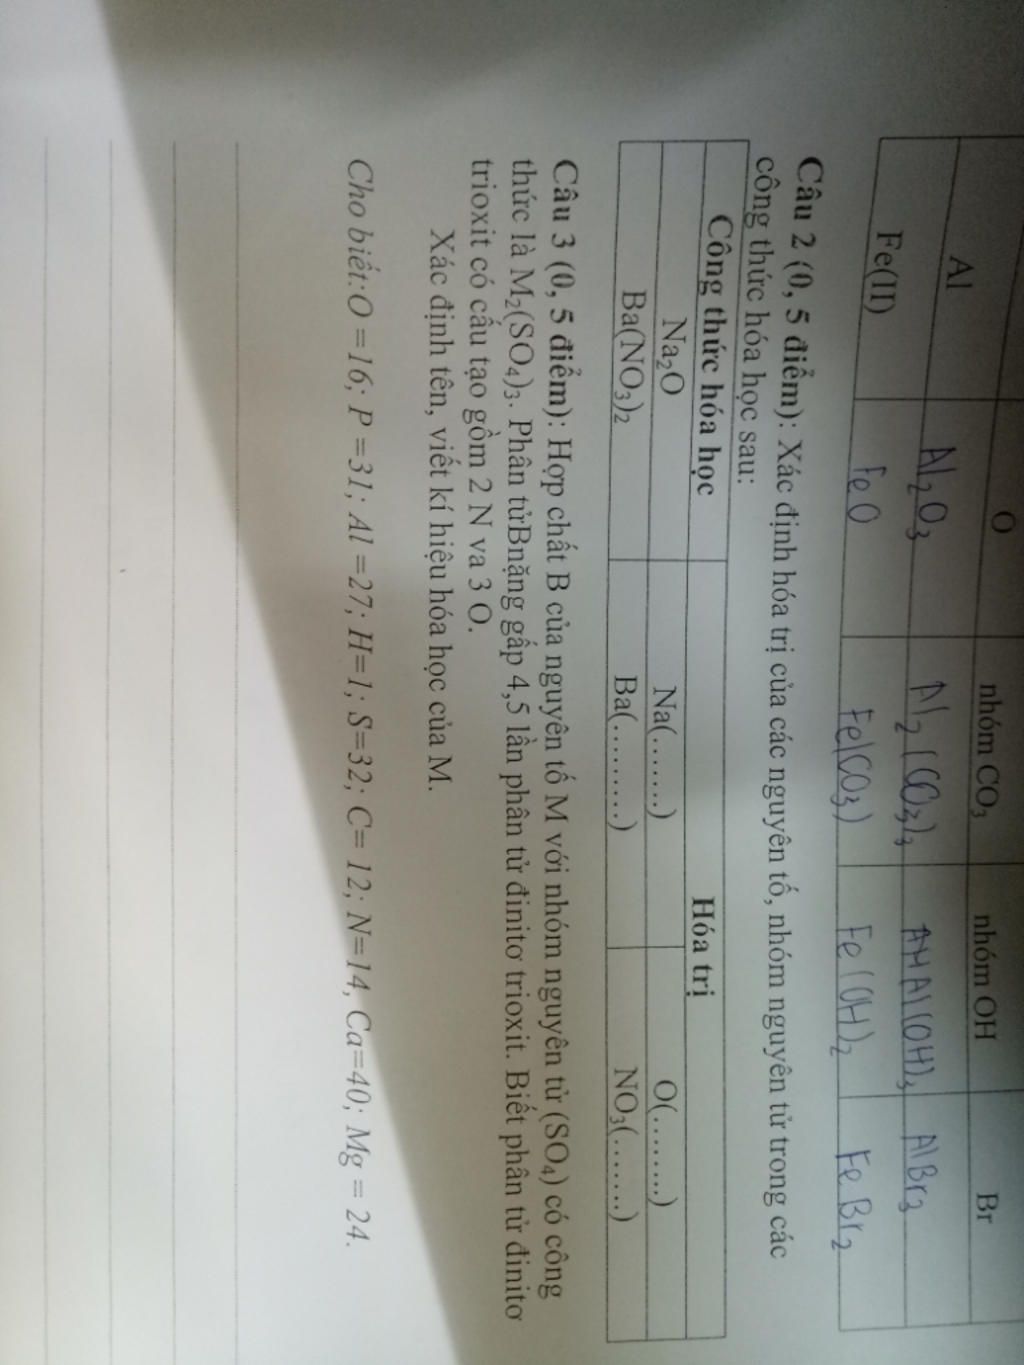 O nhóm CO3 nhóm OH Br
Al Al2O3 Al2(CO3)3 Al(OH)3 AlBr3
Fe(II) FeO Fe(CO3) Fe(OH)2 FeBr2
Câu 2 (0, 5 điểm): Xác định hóa trị của các nguyên tố, nhóm nguyên tử trong các
công thức hóa học sau:
Công thức hóa học Hóa trị
Na2O Na(.......) O(.........)
Ba(NO3)2 Ba(.........) NO3(.......)
Câu 3 (0, 5 điểm): Hợp chất B của nguyên tố M với nhóm nguyên tử (SO4) có công
thức là M2(SO4)3. Phân tửBnặng gấp 4,5 lần phân tử đinitơ trioxit. Biết phân tử đinitơ
trioxit có cấu tạo gồm 2 N va 3 O.
Xác định tên, viết kí hiệu hóa học của M.
Cho biết:O =16; P =31; Al =27; H=1; S=32; C= 12; N=14, Ca=40; Mg = 24.